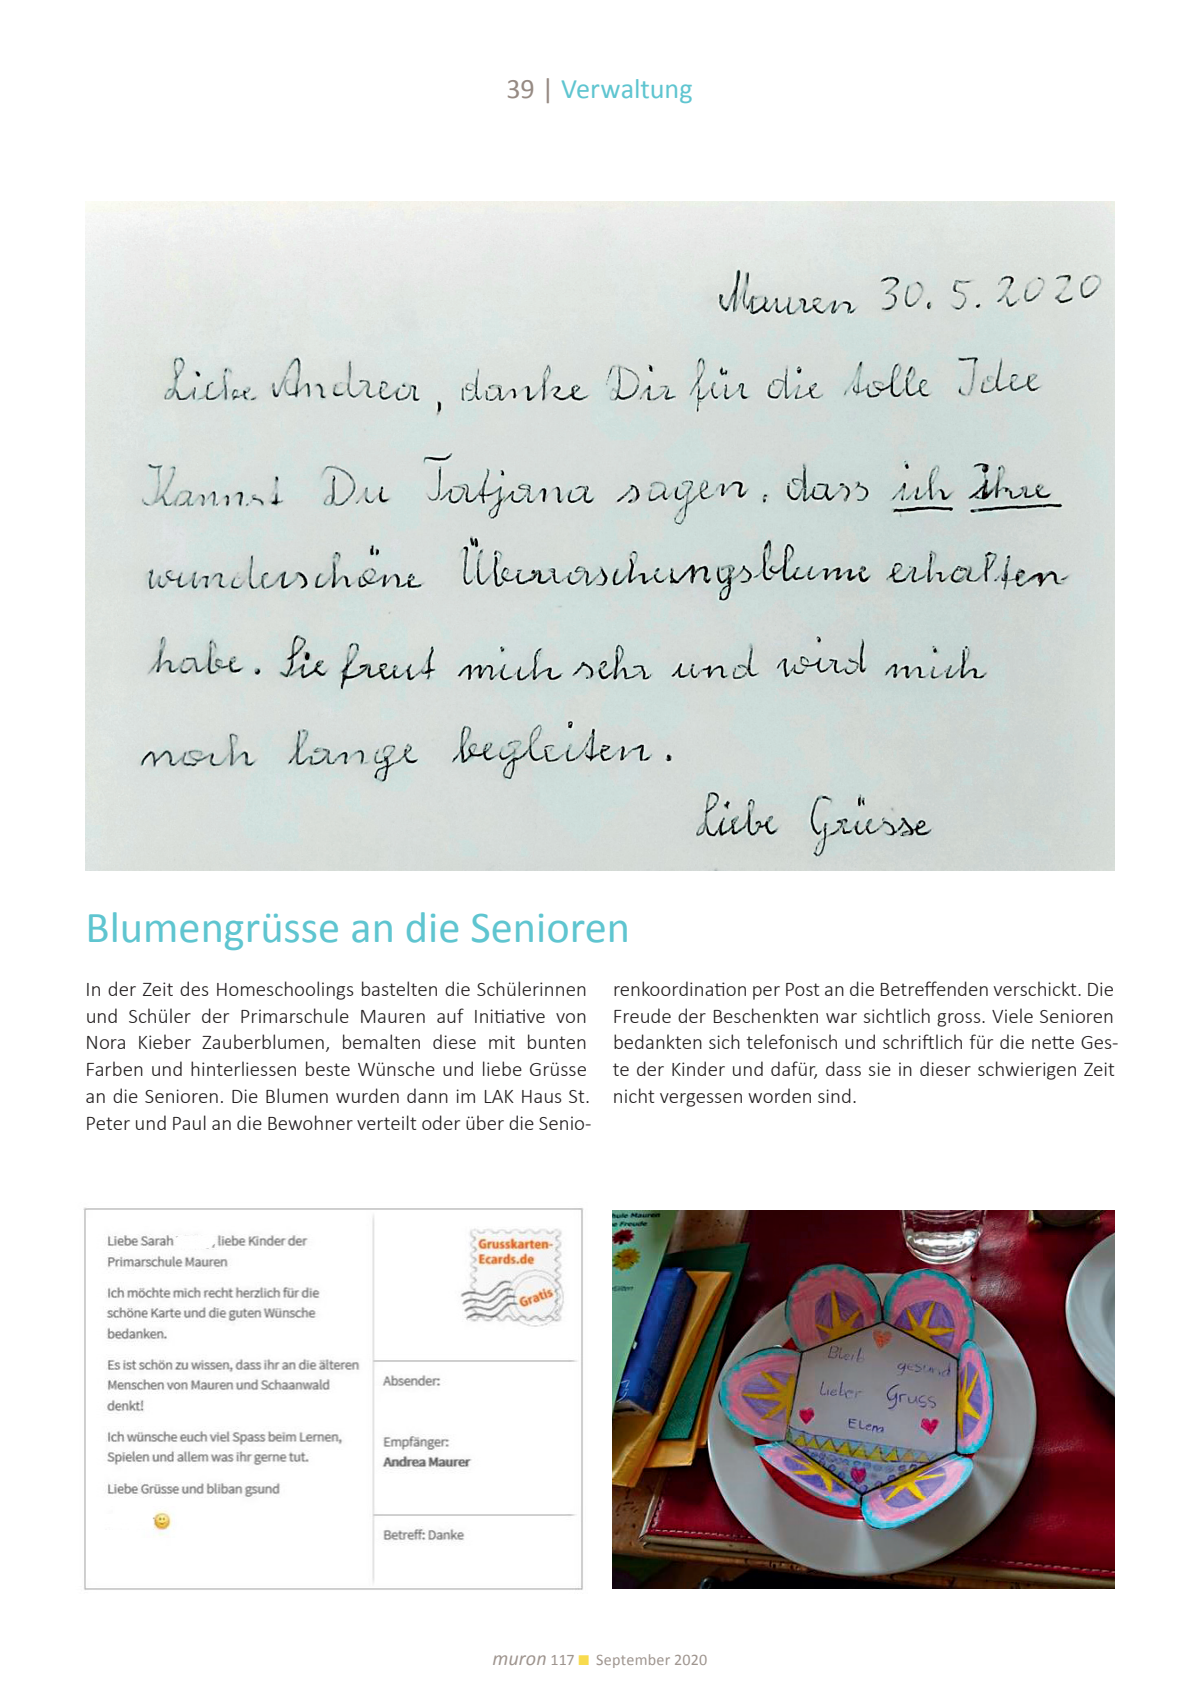 39 | Verwaltung
Mauren 30.5.2020
Liebe Andrea, danke Dir für die tolle Idee
Kannst Du Tatjana sagen, dass ich ihre
wunderschöne Überraschungsblume erhalten
habe. Sie freut mich sehr und wird mich
noch lange begleiten.
Liebe Grüsse
Blumengrüsse an die Senioren
In der Zeit des Homeschoolings bastelten die Schülerinnen
und Schüler der Primarschule Mauren auf Initiative von
Nora Kieber Zauberblumen, bemalten diese mit bunten
Farben und hinterliessen beste Wünsche und liebe Grüsse
an die Senioren. Die Blumen wurden dann im LAK Haus St.
Peter und Paul an die Bewohner verteilt oder über die Senio-
renkoordination per Post an die Betreffenden verschickt. Die
Freude der Beschenkten war sichtlich gross. Viele Senioren
bedankten sich telefonisch und schriftlich für die nette Ges-
te der Kinder und dafür, dass sie in dieser schwierigen Zeit
nicht vergessen worden sind.
Liebe Sarah , liebe Kinder der
Primarschule Mauren
Ich möchte mich recht herzlich für die
schöne Karte und die guten Wünsche
bedanken.
Es ist schön zu wissen, dass ihr an die älteren
Menschen von Mauren und Schaanwald
denkt!
Ich wünsche euch viel Spass beim Lernen,
Spielen und allem was ihr gerne tut.
Liebe Grüsse und bliban gsund
Grusskarten-
Ecards.de
Gratis
Absender:
Empfänger:
Andrea Maurer
Betreff: Danke
hule Mauren
e Freude
Bleib
gesund
Lieber Gruss
Elena
muron 117 September 2020